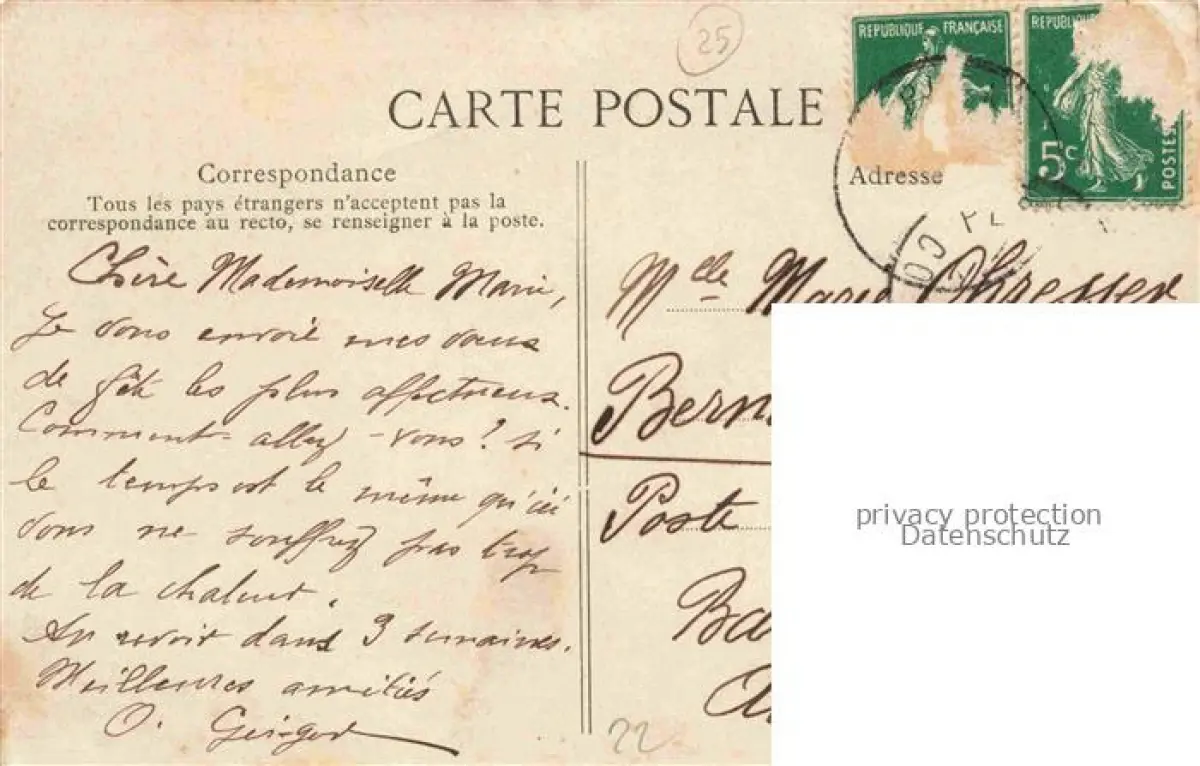 25
CARTE POSTALE
REPUBLIQUE FRANÇAISE
REPUBLIQUE
5c
POSTES
Correspondance
Tous les pays étrangers n'acceptent pas la
correspondance au recto, se renseigner à la poste.
Adresse
Chère Mademoiselle Marie,
Je vous envoie mes vœux
de fête les plus affectueux.
Comment allez-vous? si
le temps est le même qu'ici
vous ne souffrez pas trop
de la chaleur.
Au revoir dans 3 semaines.
Meilleures amitiés
O.
Mlle Marie
Bern
Poste
Ba
22
privacy protection
Datenschutz